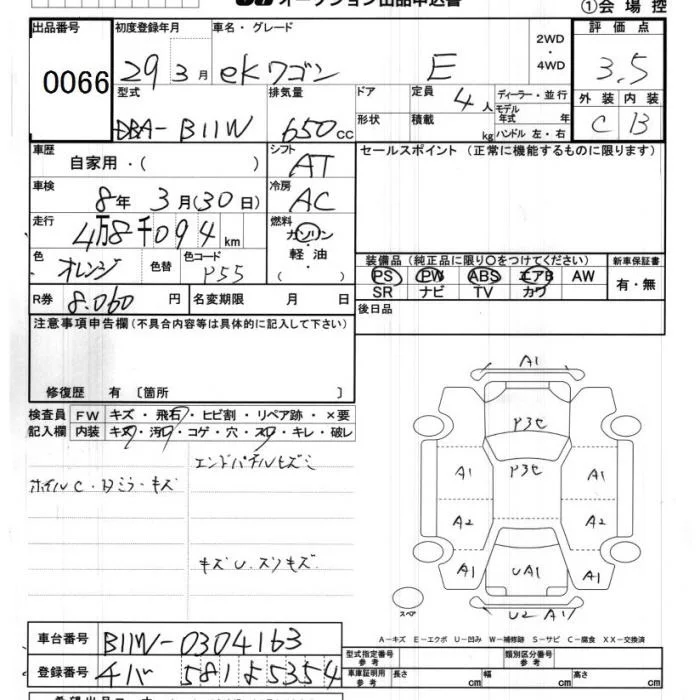 オークション出品申込書
①会場控
出品番号 0066
初度登録年月 29年3月
車名・グレード ekワゴン E
2WD・4WD
評価点 3.5
外装 内装
C B
型式 DBA-B11W
排気量 650cc
ドア
形状
定員 4人
積載 kg
ディーラー・並行
モデル年式 年
ハンドル 左・右
車歴 自家用・( )
シフト AT
セールスポイント (正常に機能するものに限ります)
車検 8年3月(30日)
冷房 AC
走行 4万8千094km
燃料 ガソリン・軽油・( )
色 オレンジ 色替 色コード P55
装備品 (純正品に限り○をつけてください)
PS PW ABS エアB AW
SR ナビ TV カワ
新車保証書 有・無
R券 8.060円 名変期限 月 日
後日品
注意事項申告欄(不具合内容等は具体的に記入して下さい)
修復歴 有 〔箇所 〕
検査員記入欄 FW キズ・飛石・ヒビ割・リペア跡・×要
内装 キズ・汚・コゲ・穴・スレ・キレ・破レ
ホイルC・Bミラーキズ
キズU.スリキズ
A1
P3C
P3C
A1 A1
A2 A2
A1 UA1 A1
U2 A1
スペア
A-キズ E-エクボ U-凹み W-補修跡 S-サビ C-腐食 XX-交換済
車台番号 B11W-0304163
登録番号 チバ 581よ5354
型式指定番号参考 類別区分番号参考
車庫証明用参考 長さ cm 幅 cm 高さ cm